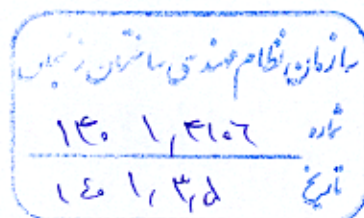 سازمان نظام مهندسی ساختمان زنجان
شماره ۱۳۰ ۱,۴۱۰۶
تاریخ ۱۴۰ ۱,۳,۵